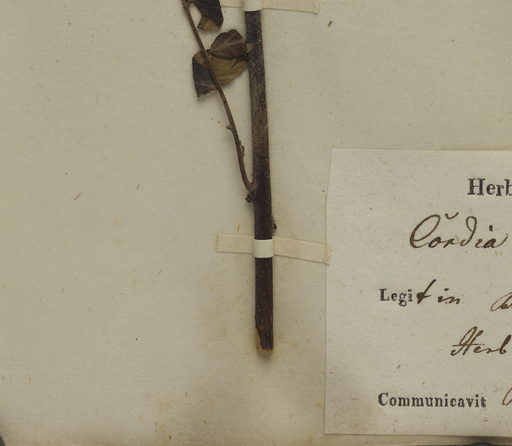 Herb
Cordia
Legit in
Herb
Communicavit